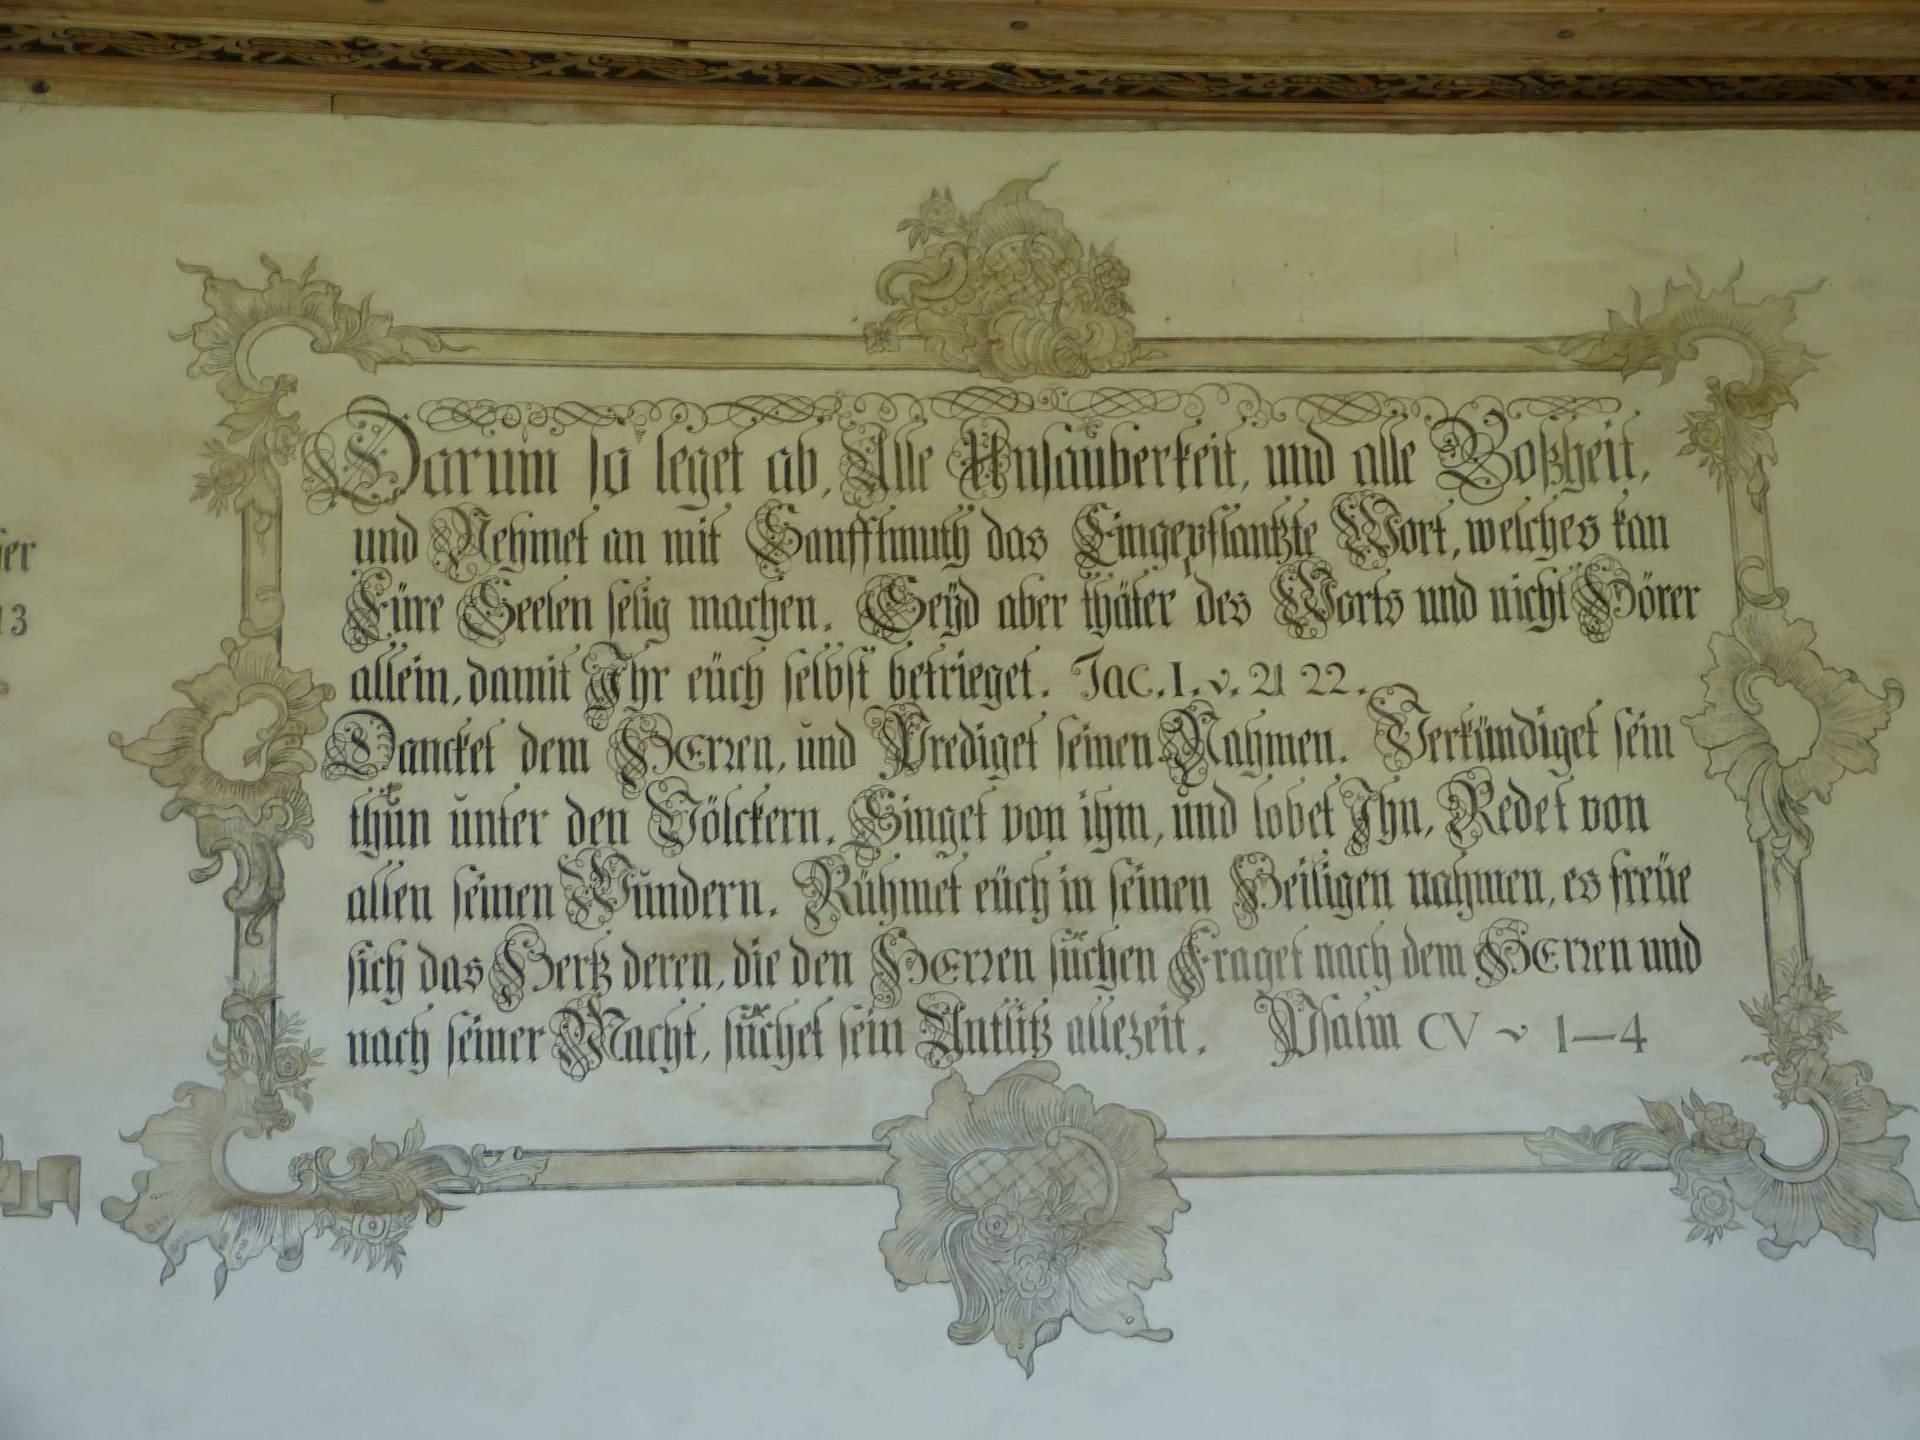 Darum so leget ab, Alle Unsauberkeit, und alle Boßheit,
und Nehmet an mit Sanfftmuth das Eingepflantzte Wort, welches kan
Eüre Seelen selig machen. Seyd aber thäter des Worts und nicht Hörer
allein, damit Ihr eüch selbst betrieget. Jac. I. v. 21 22.
Dancket dem HErren, und Prediget seinen Nahmen. Verkündiget sein
thun unter den Völckern. Singet von ihm, und lobet Ihn, Redet von
allen seinen Wundern. Rühmet eüch in seinen Heiligen nahmen, es freüe
sich das Hertz deren, die den HErren suchen Fraget nach dem HErren und
nach seiner Macht, suchet sein Antlitz allezeit. Psalm CV v 1—4
er
13